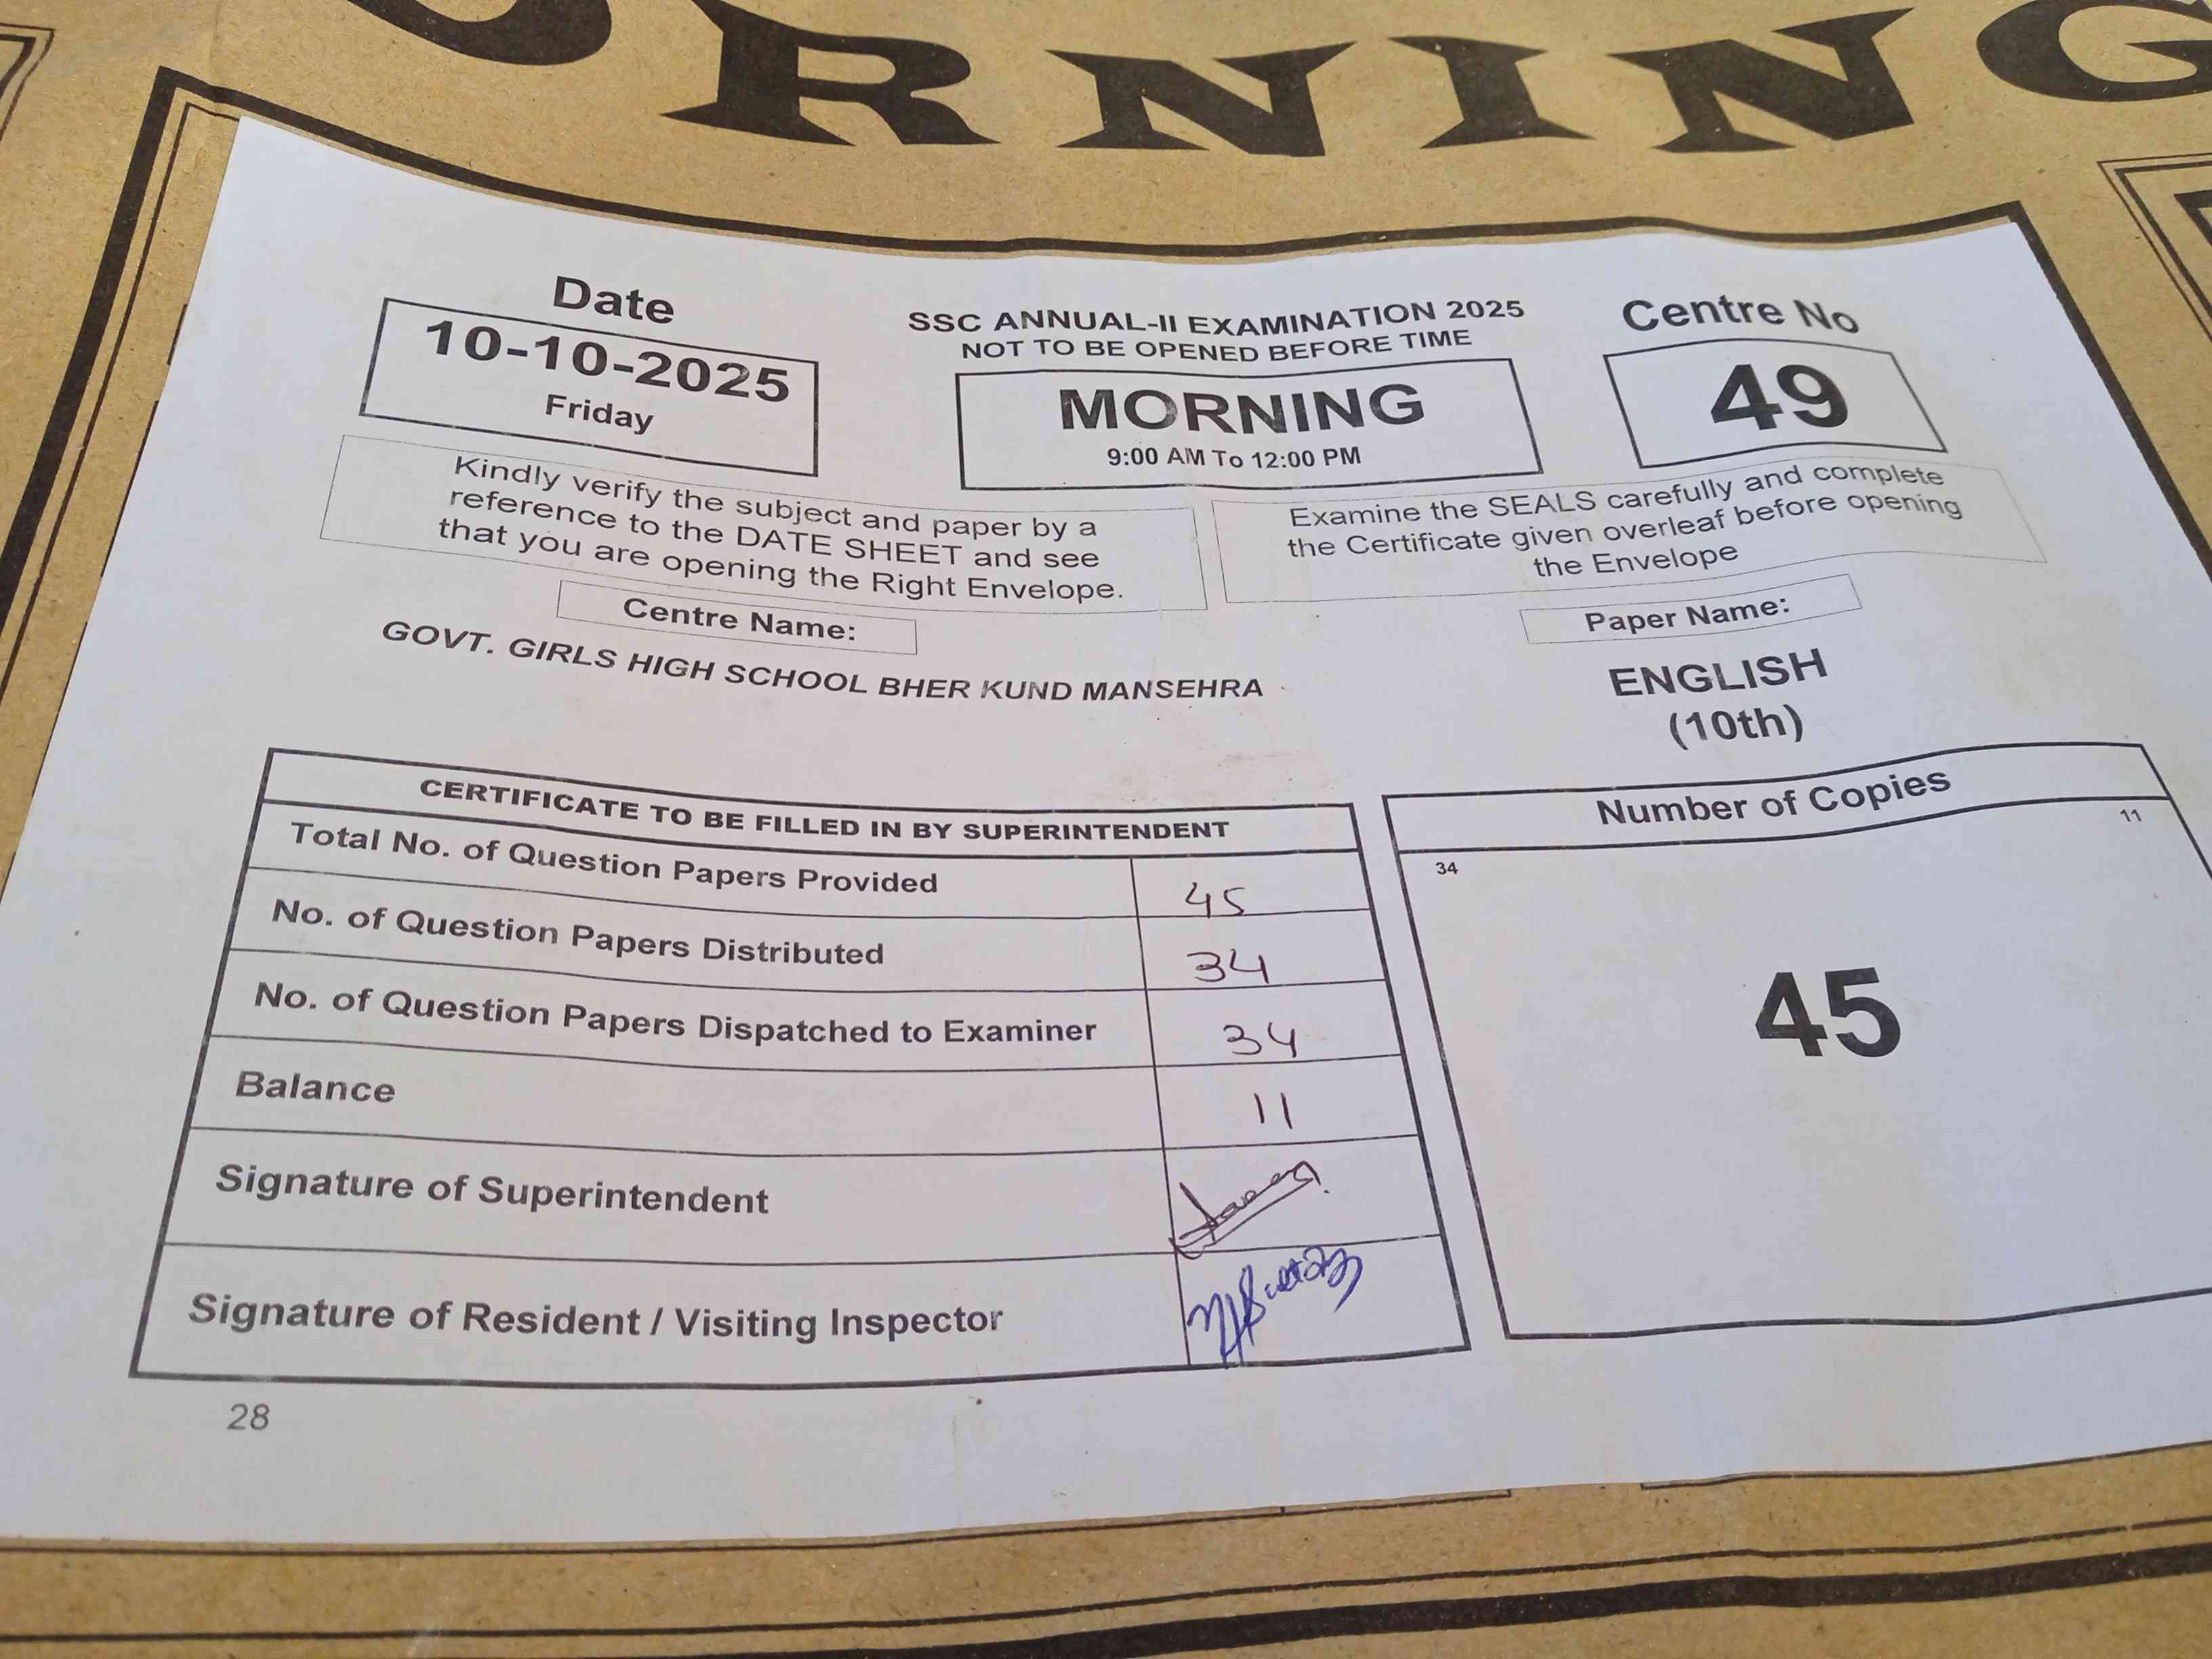 ORNING
Date
10-10-2025
Friday
SSC ANNUAL-II EXAMINATION 2025
NOT TO BE OPENED BEFORE TIME
MORNING
9:00 AM To 12:00 PM
Centre No
49
Kindly verify the subject and paper by a
reference to the DATE SHEET and see
that you are opening the Right Envelope.
Examine the SEALS carefully and complete
the Certificate given overleaf before opening
the Envelope
Centre Name:
GOVT. GIRLS HIGH SCHOOL BHER KUND MANSEHRA
Paper Name:
ENGLISH
(10th)
CERTIFICATE TO BE FILLED IN BY SUPERINTENDENT
Total No. of Question Papers Provided 45
No. of Question Papers Distributed 34
No. of Question Papers Dispatched to Examiner 34
Balance 11
Signature of Superintendent
Signature of Resident / Visiting Inspector
Number of Copies
34 11
45
28